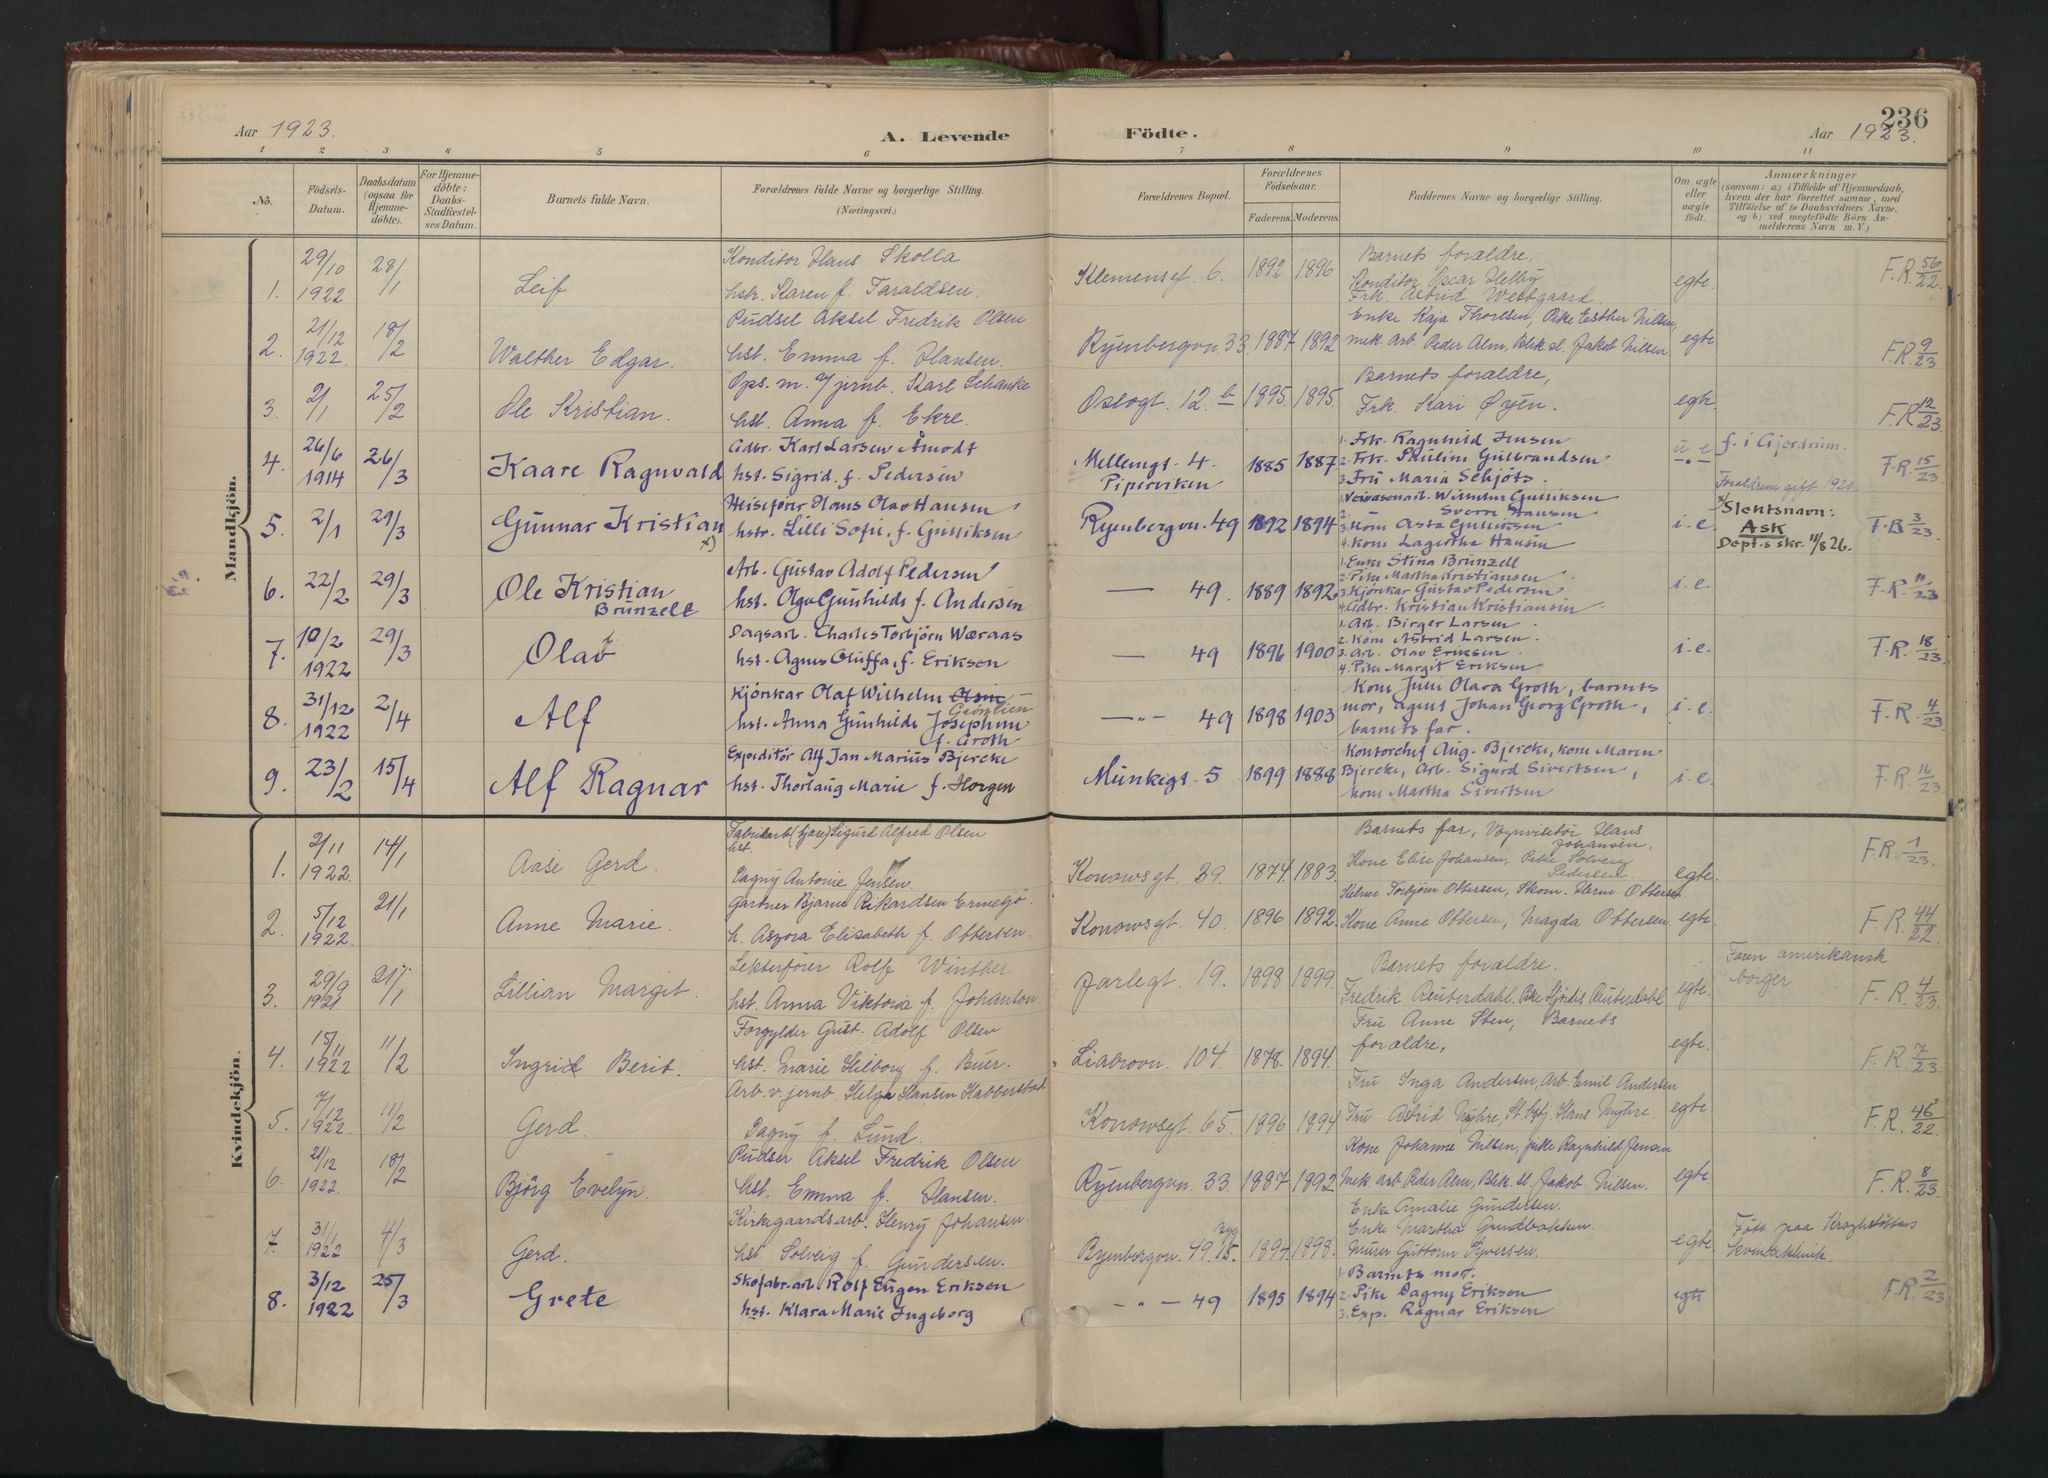 236
Aar 1923.
A. Levende
Födte.
Aar 1923.
1 2 3 4 5 6 7 8 9 10 11
No.
Födsels-Datum.
Daabsdatum (ogsaa for Hjemmedöbte).
For Hjemmedöbte: Daabs-Stadfæstelses Datum.
Barnets fulde Navn.
Forældrenes fulde Navne og borgerlige Stilling. (Næringsvei.)
Forældrenes Bopæl.
Forældrenes Födselsaar.
Faderens. Moderens.
Faddernes Navne og borgerlige Stilling.
Om ægte eller uægte födt.
Anmærkninger
(saasom: a) i Tilfælde af Hjemmedaab, hvem der har forrettet samme, med Tilföielse af to Daabsvidners Navne. og b) ved uægtefödte Börn Anmelderens Navn m. V.)
Mandkjön.
1. 29/10 1922 28/1 Leif
Konditor Hans Skolla
hstr. Karen f. Taraldsen.
Klemensgt. 6. 1892 1896
Barnets forældre,
Konditor Oscar Helby
Frk. Astrid Westgaard.
egte. F.R. 56/22.
2. 21/12 1922 18/2 Walther Edgar.
Pudser Aksel Fredrik Olsen
hst. Emma f. Hansen.
Ryenbergvn 33. 1887 1892
Enke Kaja Thoresen, Pike Esther Nilsen,
mek. arb Peder Alm, Blik.sl. Jakob Nilsen
egte F.R. 9/23
3. 2/1 25/2 Ole Kristian.
Ops. m. v/jernb. Karl Schanke
hst. Anna f. Ekre.
Oslogt. 12 b 1895. 1895.
Barnets forældre,
Frk. Kari Øyen.
egte. F.R. 12/23.
4. 26/6 1914 26/3 Kaare Ragnvald
Gdbr. Karl Larsen Åmodt
hst. Sigrid f. Pedersen
Mellemgt. 4.
Piperviken
1885 1887
1. Frk. Ragnhild Jensen
2. Frk. Pauline Gulbrandsen
3. Fru Maria Schjöts.
u. e f. i Gjerdrum.
Forældrene gift 1920.
F.R. 15/23
5. 2/1 29/3 Gunnar Kristian x)
Heisefører Hans Olav Hansen
hstr. Lilli Sofie f. Gulliksen
Ryenbergvn. 49 1892 1894
1. Wilhelm Gulliksen
2. Sverre Hansen
3. Kone Asta Gulliksen
4. Kone Lagertha Hansen
i. e. x) Slektsnavn:
Ask
Dept.s skr. 11/8 26.
F.B 3/23.
6. 22/2 29/3 Ole Kristian
Brunzell
Arb. Gustav Adolf Pedersen
hst. Olga Gunhilde f. Andersen
— 49. 1889 1892
1. Enke Stina Brunzell
2. Pike Martha Kristiansen
3. Kjörekar Gustav Pedersen
4. Gdbr. Kristian Kristiansen
i. e. F.R. 11/23
7. 10/2 1922 29/3 Olav
Dagsarb. Charles Torbjörn Wæraas
hst. Agnes Oluffa f. Eriksen
— 49 1896 1900
1. Arb. Birger Larsen.
2. Kone Astrid Larsen.
3. Arb. Olav Eriksen.
4. Pike Margit Eriksen
i. e. F.R. 18/23.
8. 31/12 1922 2/4 Alf
Kjörekar Olaf Wilhelm Olsen
Grönlien
hst. Anna Gunhilde Josephine
f. Groth
—"— 49 1898 1903
Kone Julie Olava Groth, barnets
mor, agent Johan Georg Groth,
barnets far.
i. e. F.R. 4/23
9. 23/2 15/4 Alf Ragnar
Expeditör Alf Jan Marius Bjercke
hst. Thorlaug Marie f. Horgen
Munkegt. 5 1899 1888
Kontorchef Aug. Bjercke, kone Maren
Bjercke, Arb. Sigurd Sivertsen,
kone Martha Sivertsen
i. e. F.R. 16/23.
Kvindekjön.
1. 2/11 1922. 14/1 Aase Gerd.
Fabrikarb (bjare) Sigurd Alfred Olsen
hst.
Dagny Antonie Jensen.
Konowsgt. 39. 1874. 1883.
Barnets far, Vognvisitör Hans
Johansen,
Kone Elise Johansen, Pike Solveig
Pedersen.
egte. F.R. 1/23.
2. 5/12 1922. 21/1 Anne Marie.
Gartner Bjarne Rikardsen Ermesjö.
h. Aszora Elisabeth f. Ottersen.
Konowsgt. 40. 1896 1892.
Torbjörn Ottersen, Skom. Herm. Ottersen
Kone Anne Ottersen, Magda Ottersen.
egte. F.R. 44/22.
3. 29/9 1921 21/1 Lillian Margit.
Rolf Winther
hst. Anna Viktoria f. Johanson.
Jarlegt. 19. 1898 1899.
Barnets forældre.
Fredrik Reuterdahl. Pike Hjördis Reuterdahl
egte. Faren amerikansk
borger.
F.R. 4/23.
4. 15/11 1922 11/2 Ingrid Berit.
Forgylder Gust. Adolf Olsen
hst. Marie Hilborg f. Buer.
Liabrovn. 104. 1878. 1894.
Fru Anne Sten, Barnets
forældre,
egte. F.R. 7/23.
5. 7/12 1922. 11/2 Gerd.
Arb. v. jernb. Helge Hansen Habberstad
Dagny f. Lund.
Konowsgt. 65. 1896 1894
Fru Inga Andersen, Arb. Emil Andersen
Fru Astrid Myhre, Hans Myhre.
egte. F.R. 46/22.
6. 21/12 1922. 18/2 Björg Evelyn.
Pudser Aksel Fredrik Olsen
hst. Emma f. Hansen.
Ryenbergvn. 33. 1887 1892
Kone Johanne Nilsen, pike Ragnhild Jensen
Mek arb Peder Alm, Blik.sl. Jakob Nilsen.
egte. F.R. 8/23.
7. 31/1 1922 4/3 Gerd.
Kirkegaardsarb. Henry Johansen.
hst Solveig f. Gundersen.
Ryenbergvn. 49 1897 1898.
Enke Amalie Gundersen.
Enke Martha Grindbakken.
Murer Guttorm Syversen.
egte. Født paa
kvindeklinik
8. 3/12 1922 25/3 Grete
Skofabr.arb. Rolf Eugen Eriksen
hst. Klara Marie Ingeborg
—"— 49 1895 1894
1. Barnets mor.
2. Pike Dagny Eriksen
3. Exp. Ragnar Eriksen
egte F.R. 2/23